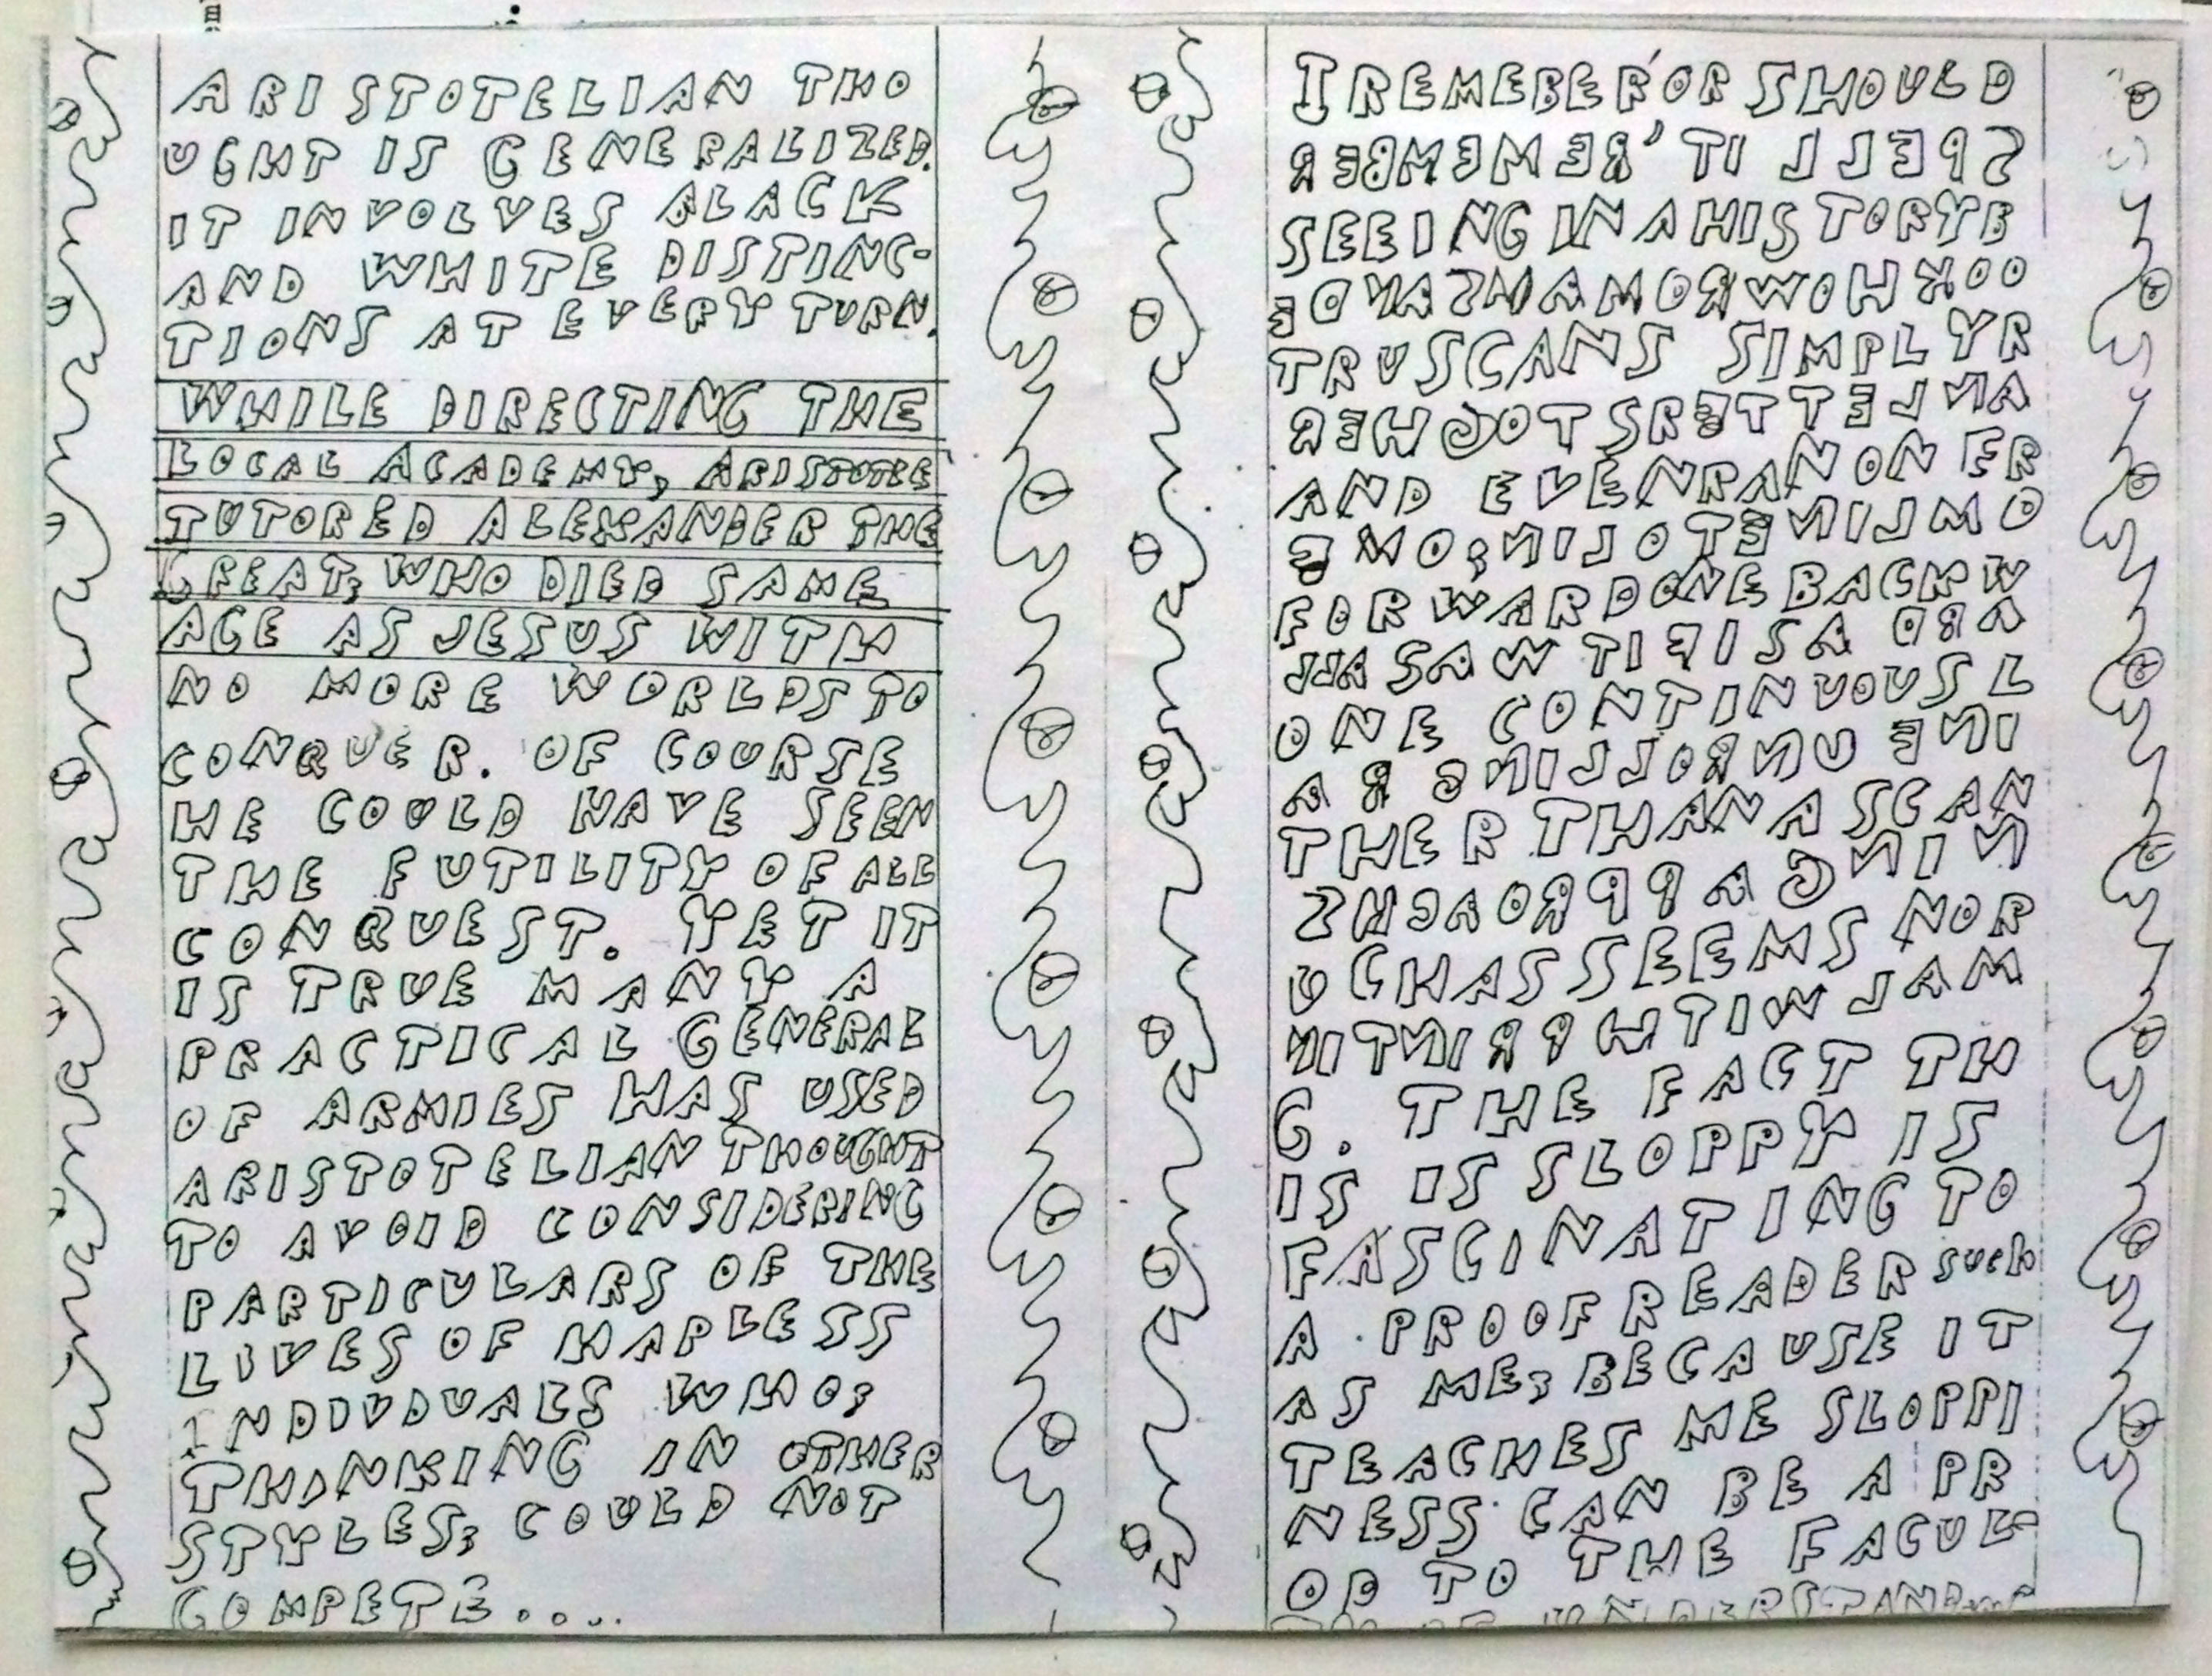 ARISTOTELIAN THO
UGHT IS GENERALIZED.
IT INVOLVES BLACK
AND WHITE DISTINC-
TIONS AT EVERY TURN.
WHILE DIRECTING THE
LOCAL ACADEMY, ARISTOTLE
TUTORED ALEXANDER THE
GREAT; WHO DIED SAME
AGE AS JESUS WITH
NO MORE WORLDS TO
CONQUER. OF COURSE
HE COULD HAVE SEEN
THE FUTILITY OF ALL
CONQUEST. YET IT
IS TRUE MANY A
PRACTICAL GENERAL
OF ARMIES HAS USED
ARISTOTELIAN THOUGHT
TO AVOID CONSIDERING
PARTICULARS OF THE
LIVES OF HAPLESS
INDIVDUALS WHO;
THINKING IN OTHER
STYLES; COULD NOT
COMPETE....
I REMEBER'OR SHOULD
SPELL IT,'REMEMBER
SEEING IN A HISTORY B
OOK HOW ROMANS AND E
TRUSCANS SIMPLY R
AN LETTERS TOGHER
AND EVEN RAN ON FR
OM LINE TO LIN;OM E
FORWARD ONE BACKW
ARD AS IF IT WAS ALL
ONE CONTINUOUS L
INE UNROLLING RA
THER THAN A SCAN
NING APPROACH S
UCH AS SEEMS NOR
MAL WITH PRINTIN
G. THE FACT TH
IS IS SLOPPY IS
FASCINATING TO
A PROOFREADER such
AS ME; BECAUSE IT
TEACHES ME SLOPPI
NESS CAN BE A PR
OD TO THE FACUL-
TY OF